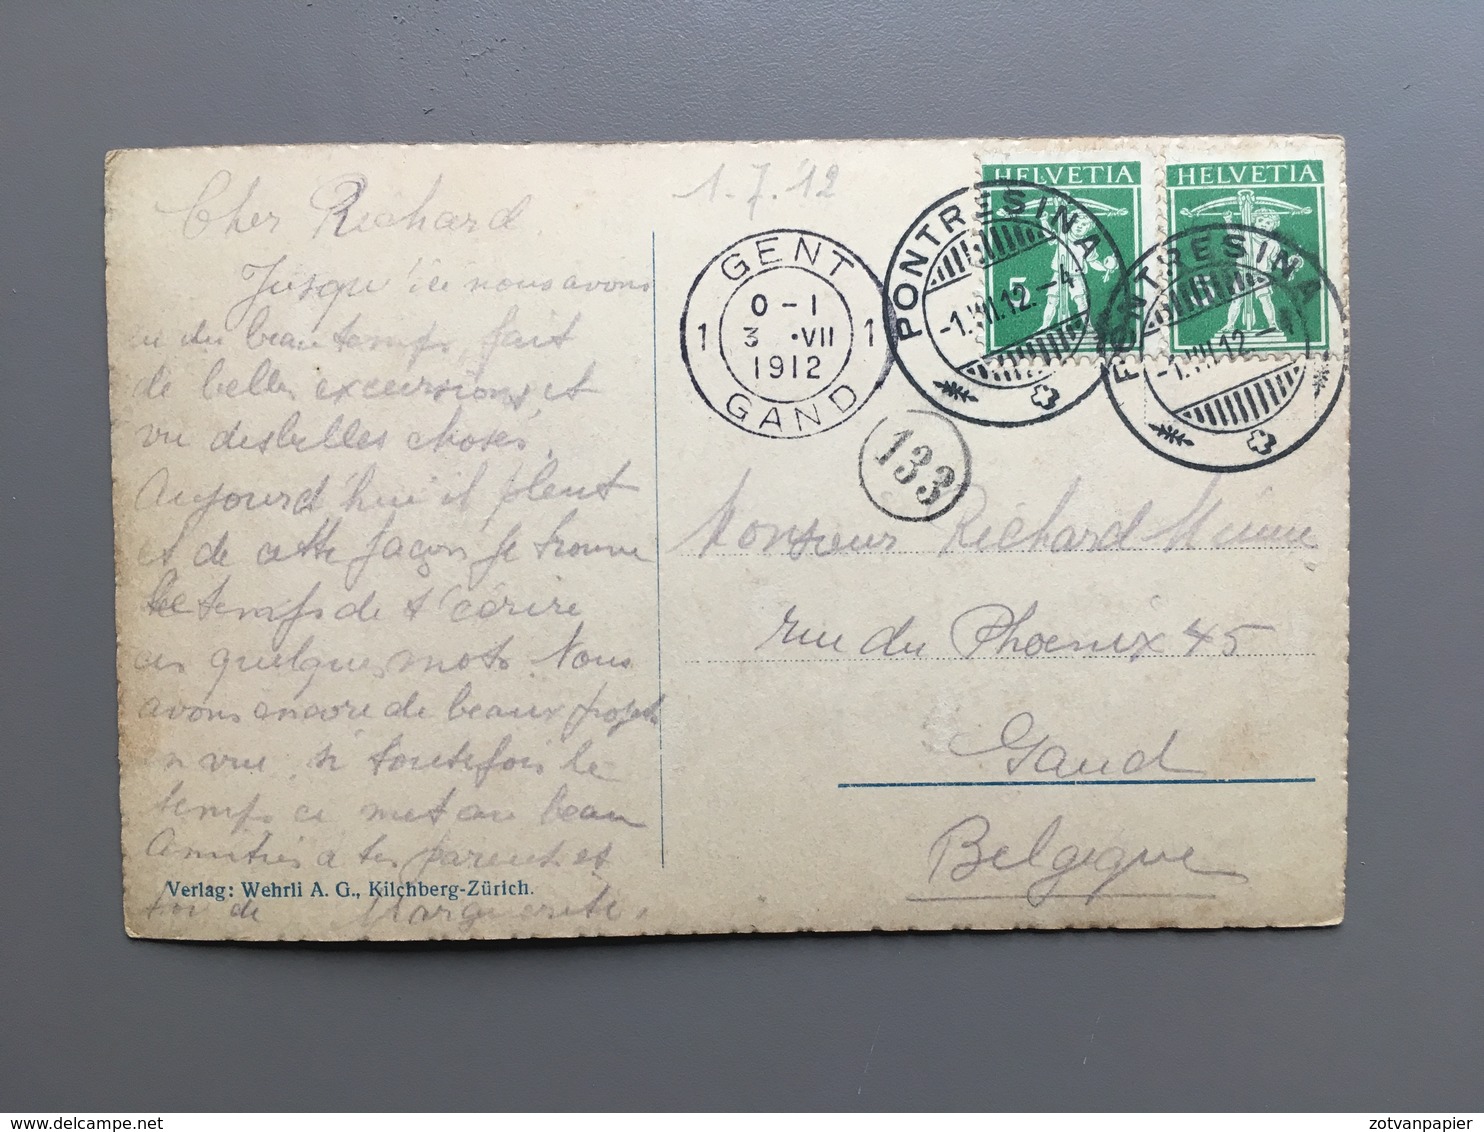 1.7.'12
Cher Richard.
Jusqu'ici nous avons
eu du beau temps, fait
de belles excursions, et
vu des belles choses.
Aujourd'hui il pleut
et de cette façon je trouve
le temps de t'écrire
ces quelques mots. Nous
avons encore de beaux projets
en vue, si toutefois le
temps ce met au beau
Amitiés à tes parents et
toi de Marguerite.
Verlag: Wehrli A. G., Kilchberg-Zürich.
GENT
0-1
1 3 ·VII 1
1912
GAND
133
HELVETIA
5
HELVETIA
PONTRESINA
-1.VII.12.-4
PONTRESINA
-1.VII.12.-4
Monsieur Richard
rue du Phoenix 45
Gand
Belgique
delcampe.net
zotvanpapier